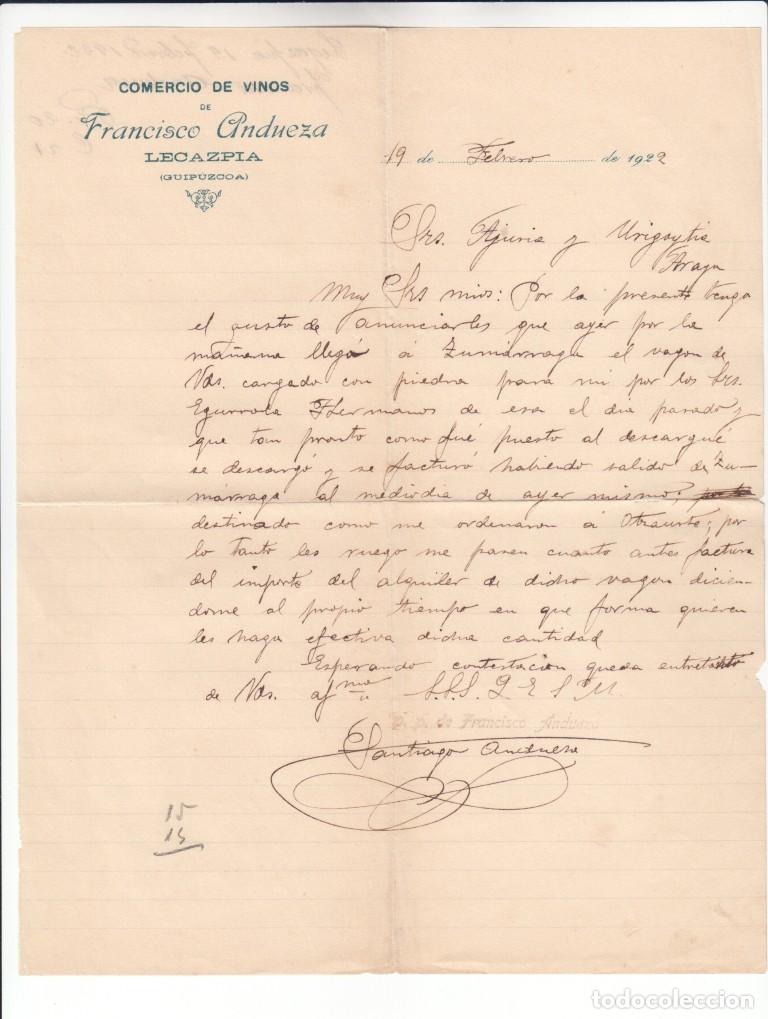 COMERCIO DE VINOS
DE
Francisco Andueza
LECAZPIA
(GUIPÚZCOA)
19 de Febrero de 1922
Srs. Ajuria y Urigoytia
Araya
Muy Srs mios: Por la presente tengo
el gusto de anunciarles que ayer por la
mañana llegó á Zumárraga el vagon de
Vds. cargado con piedra para mi por los Srs.
Egurrola Hermanos de esa el dia pasado y
que tan pronto como fué puesto al descargue
se descargó y se facturó habiendo salido de Zu-
márraga al mediodia de ayer mismo;
destinado como me ordenaron á Otzaurte; por
lo tanto les ruego me pasen cuanto antes factura
del importe del alquiler de dicho vagon dicien-
dome al propio tiempo en que forma quieren
les haga efectiva dicha cantidad
Esperando contestacion queda entretanto
de Vds. afmo S.S.S. Q E S M.
P. p. de Francisco Andueza
Santiago Andueza
15
15
todocoleccion